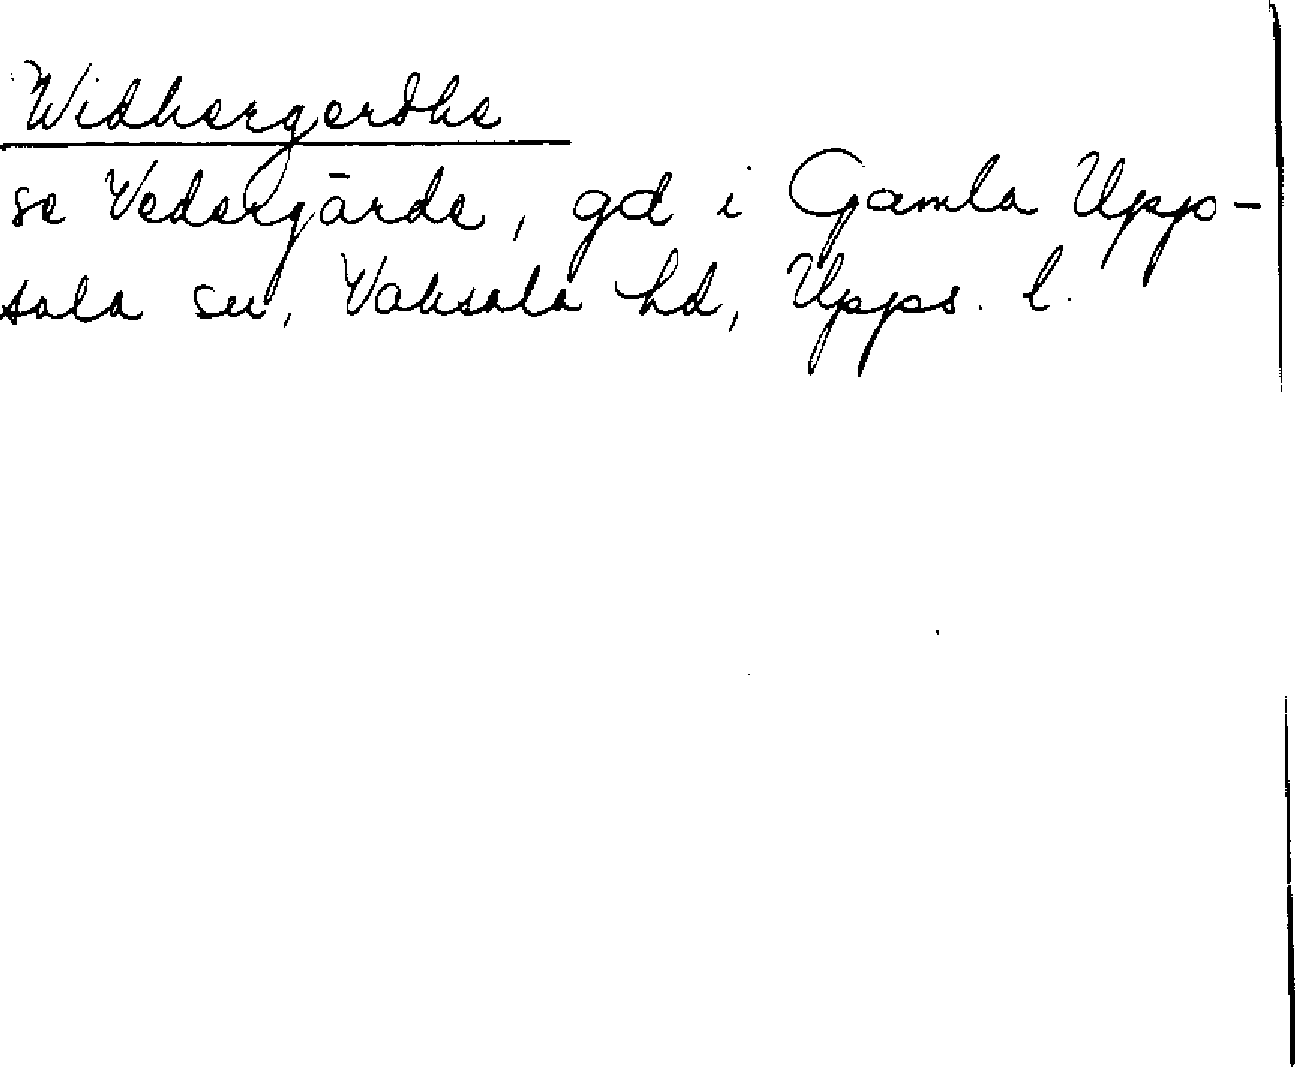 Widhergerdhe
se Vedergärde, gd i Gamla Upp-
sala sn, Vaksala hd, Upps. l.